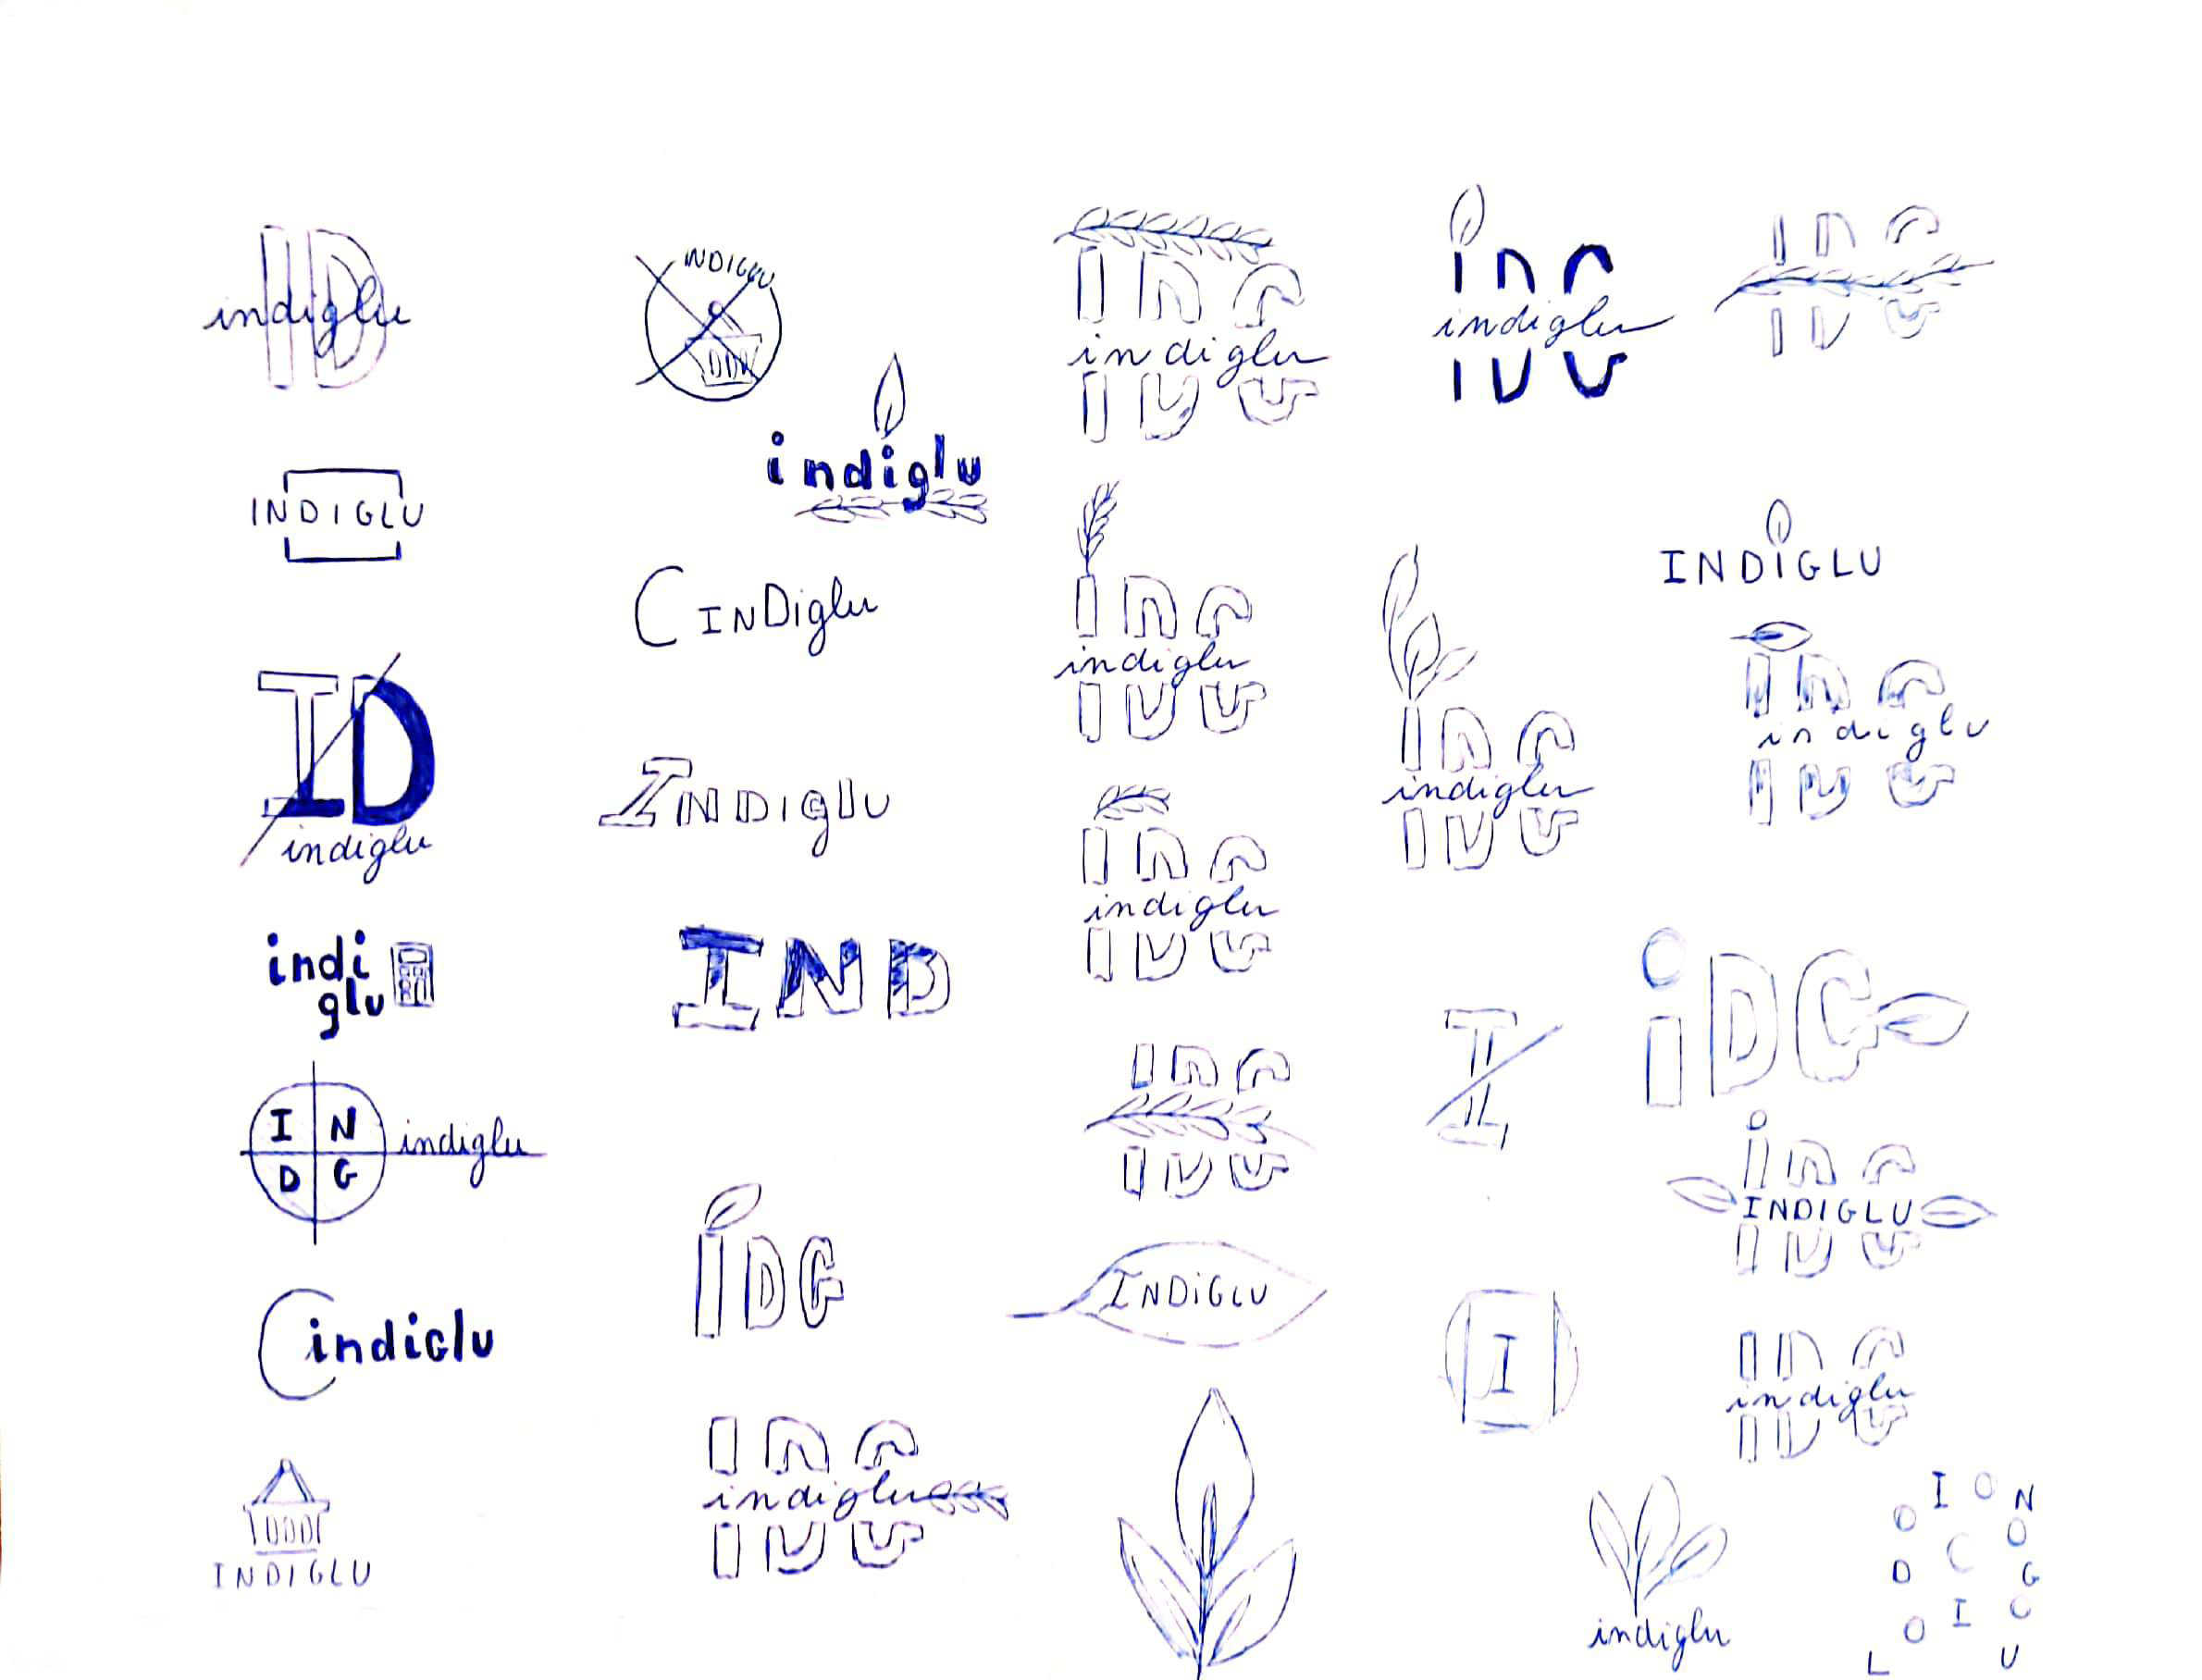 ID
indiglu
INDIGLU
ID
indiglu
indi
glu
I N
D G
indiglu
C indiGlu
INDIGLU
INDIGLU
indiglu
C INDiglu
INDIGlU
IND
IDG
IDG
indiglu
IDG
indiglu
IDG
indiglu
IDG
indiglu
IDG
INDiGLU
IDG
indiglu
IDG
indiglu
I
I
indiglu
IDG
INDiGLU
IDG
indiglu
iDG
iDG
INDIGLU
IDG
indiglu
I O N
O O
C
D G
I C
O
L U